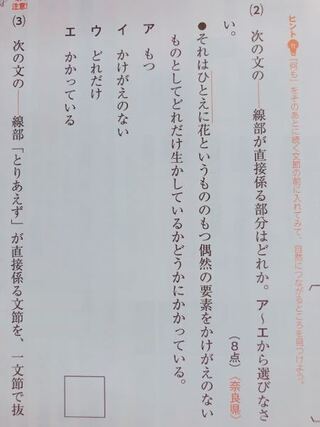 注意!
ヒント (1)「何も」をそのあとに続く文節の前に入れてみて、自然につながるところを見つけよう。
(2) 次の文の――線部が直接係る部分はどれか。ア〜エから選びなさ
い。
(8点)〈奈良県〉
●それはひとえに花というもののもつ偶然の要素をかけがえのない
ものとしてどれだけ生かしているかどうかにかかっている。
ア もつ
イ かけがえのない
ウ どれだけ
エ かかっている
(3) 次の文の――線部「とりあえず」が直接係る文節を、一文節で抜